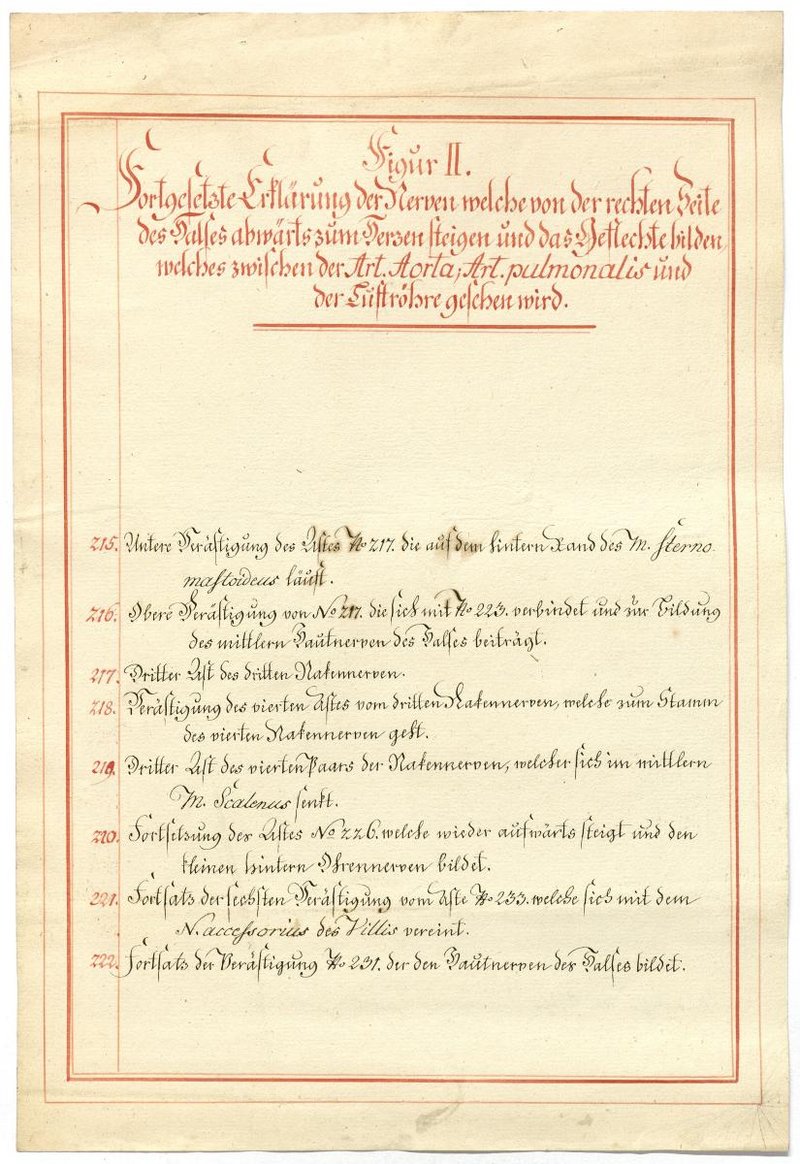 Figur II.
Fortgesetzte Erklärung der Nerven welche von der rechten Seite
des Halses abwärts zum Herzen steigen und das Geflechte bilden,
welches zwischen der Art. Aorta, Art. pulmonalis und
der Luftröhre gesehen wird.
215. Untere Verästigung des Astes No 217. die auf dem hintern Rand des M. sterno
mastoideus läuft.
216. Obere Verästigung von No 217. die sich mit No 223. verbindet und zur Bildung
des mittlern Hautnerven des Halses beiträgt.
217. Dritter Ast des dritten Nakennerven.
218. Verästigung des vierten Astes vom dritten Nakennerven, welche zum Stamm
des vierten Nakennerven geht.
219. Dritter Ast des vierten Paars der Nakennerven, welcher sich im mittlern
M. Scalenus senkt.
220. Fortsetzung des Astes No 226. welche wieder aufwärts steigt und den
kleinen hintern Ohrennerven bildet.
221. Fortsatz der sechsten Verästigung vom Aste No 233. welche sich mit dem
N. accessorius des Villis vereint.
222. Fortsatz der Verästigung No 231. der den Hautnerven des Halses bildet.